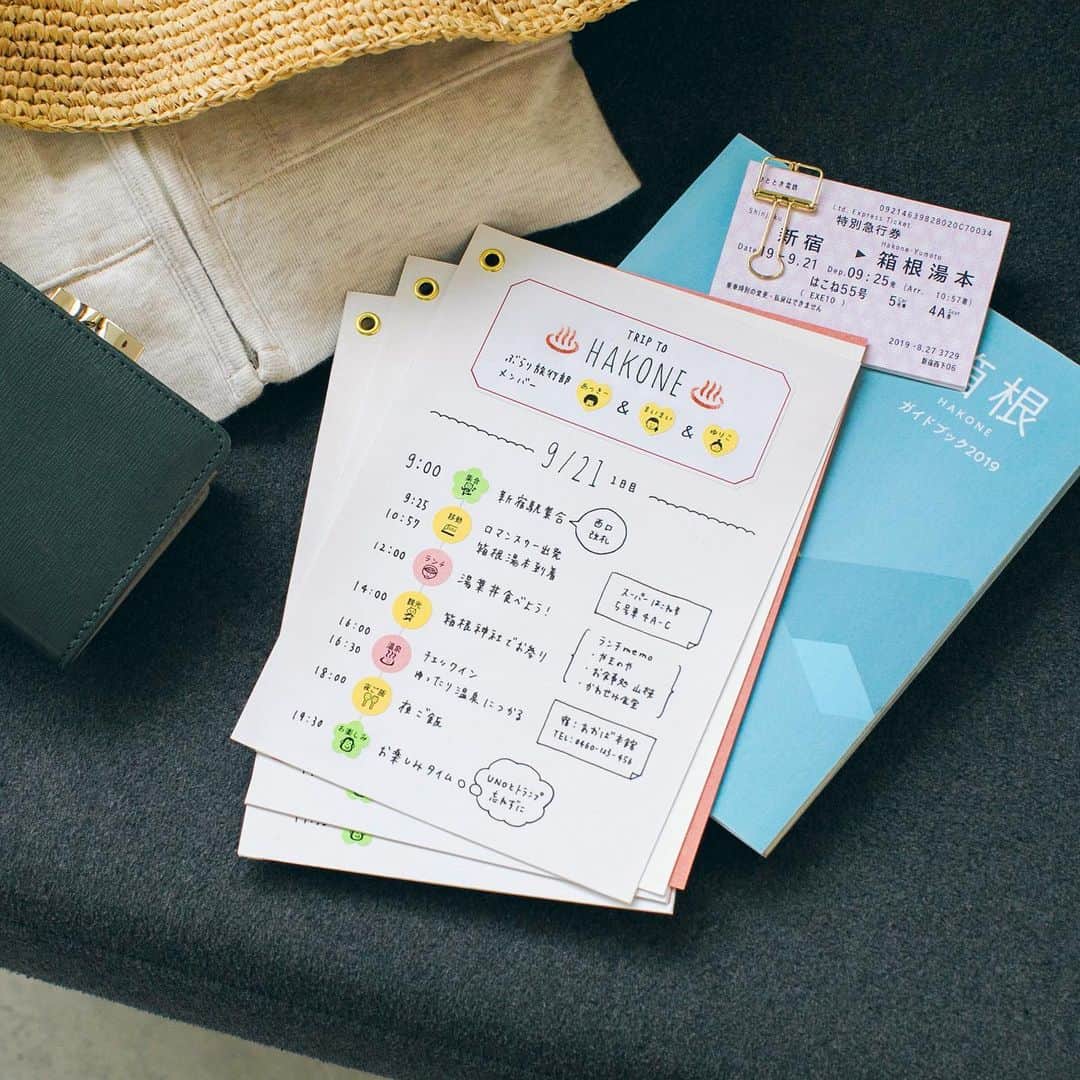 TRIP TO
HAKONE
ぶらり旅行部
メンバー
あっきー
&
まいまい
&
ゆりこ
9/21 1日目
9:00 集合 新宿駅集合
西口
改札
9:25 移動 ロマンスカー出発
10:57 箱根湯本到着
スーパーはこね号
5号車 4A-C
12:00 ランチ 湯葉丼食べよう!
ランチmemo
・お食事処 山桜
・かわせみ食堂
14:00 観光 箱根神社でお参り
16:00 温泉 チェックイン
16:30 ゆったり温泉につかる
宿:あおば本館
TEL:0460-123-456
18:00 夜ご飯 夜ご飯
19:30 お楽しみ お楽しみタイム
UNOとトランプ
忘れずに
09214639B28020C70034
Ltd. Express Ticket
特別急行券
Shinjuku
新宿
Hakone-Yumoto
箱根湯本
Date 19-9.21 Dep. 09:25発 (Arr. 10:57着)
はこね55号 5 4A
( EXE10 )
乗車時刻の変更・払戻はできません
2019-8.27 3729
新宿西下06
箱根
HAKONE
ガイドブック2019